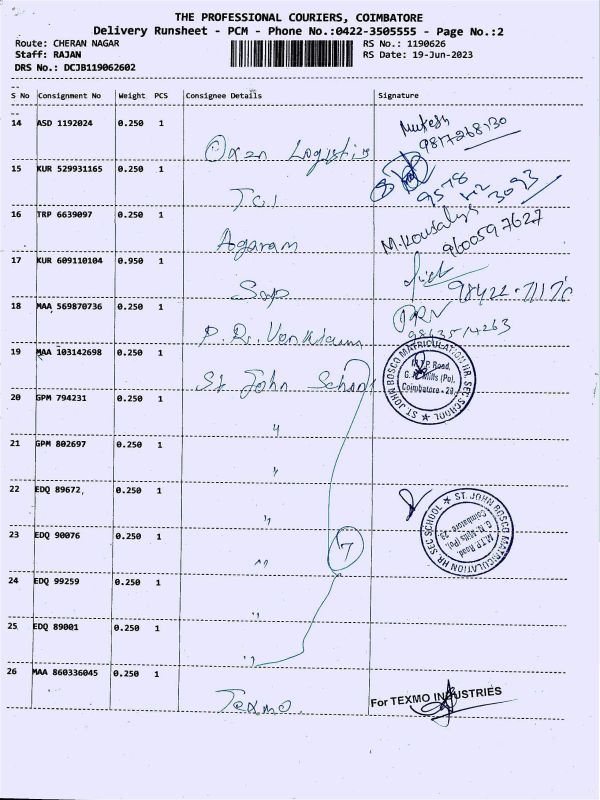 THE PROFESSIONAL COURIERS, COIMBATORE
Delivery Runsheet - PCM - Phone No.:0422-3505555 - Page No.:2
Route: CHERAN NAGAR RS No.: 1190626
Staff: RAJAN RS Date: 19-Jun-2023
DRS No.: DCJB119062602
S No Consignment No Weight PCS Consignee Details Signature
14 ASD 1192024 0.250 1
Oxen Logistics Mukesh 9817268130
15 KUR 529931165 0.250 1
9578
3093
16 TRP 6639097 0.250 1
Agaram M.Kousalya 9600597627
17 KUR 609110104 0.950 1
18 MAA 569870736 0.250 1
P. R. 9863514263
19 MAA 103142698 0.250 1
St. John School
ST JOHN BOSCO MATRICULATION HR. SEC SCHOOL
M.T.P Road,
G. N. Mills (Po),
Coimbatore - 29.
20 GPM 794231 0.250 1
"
21 GPM 802697 0.250 1
"
22 EDQ 89672, 0.250 1
"
ST. JOHN BOSCO MATRICULATION HR. SEC SCHOOL
M.T.P Road,
G. N. Mills (Po),
Coimbatore - 29.
23 EDQ 90076 0.250 1
" 7
24 EDQ 99259 0.250 1
"
25 EDQ 89001 0.250 1
"
26 MAA 860336045 0.250 1
Texmo. For TEXMO INDUSTRIES